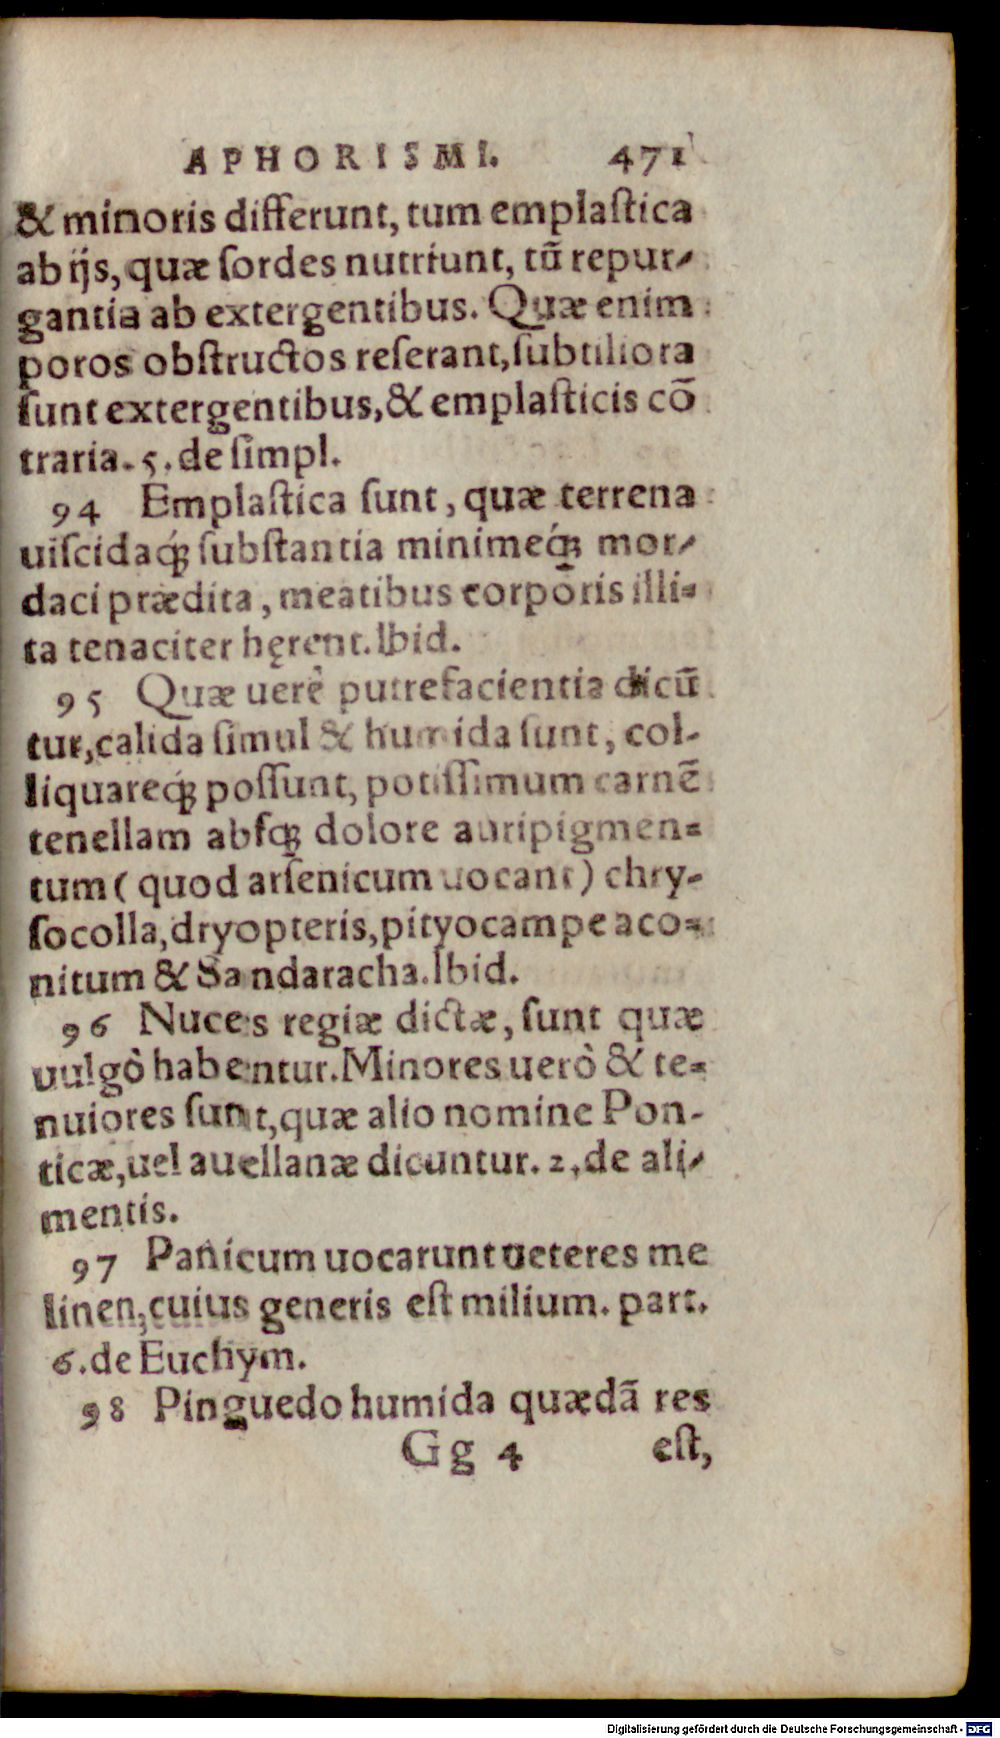 APHORISMI. 471
& minoris differunt, tum emplaſtica
ab ijs, quæ ſordes nutriunt, tũ repur-
gantia ab extergentibus. Quæ enim
poros obſtructos reſerant, ſubtiliora
ſunt extergentibus, & emplaſticis cõ
traria. 5. de ſimpl.
94 Emplaſtica ſunt, quæ terrena
uiſcidaq́ꝫ ſubſtantia minimeq́ꝫ mor-
daci prædita, meatibus corporis illi-
ta tenaciter hęrent. Ibid.
95 Quæ uerè putrefacientia dicũ
tur, calida ſimul & humida ſunt, col-
liquareq́ꝫ poſſunt, potiſſimum carnẽ
tenellam abſqꝫ dolore auripigmen-
tum (quod arſenicum uocant) chry-
ſocolla, dryopteris, pityocampe aco-
nitum & Sandaracha. Ibid.
96 Nuces regiæ dictæ, ſunt quæ
uulgò habentur. Minores uerò & te-
nuiores ſunt, quæ alio nomine Pon-
ticæ, uel auellanæ dicuntur. 2, de ali-
mentis.
97 Panicum uocarunt ueteres me
linen, cuius generis eſt milium. part.
6. de Euchym.
98 Pinguedo humida quædã res
Gg 4 eſt,
Digitalisierung gefördert durch die Deutsche Forschungsgemeinschaft - DFG